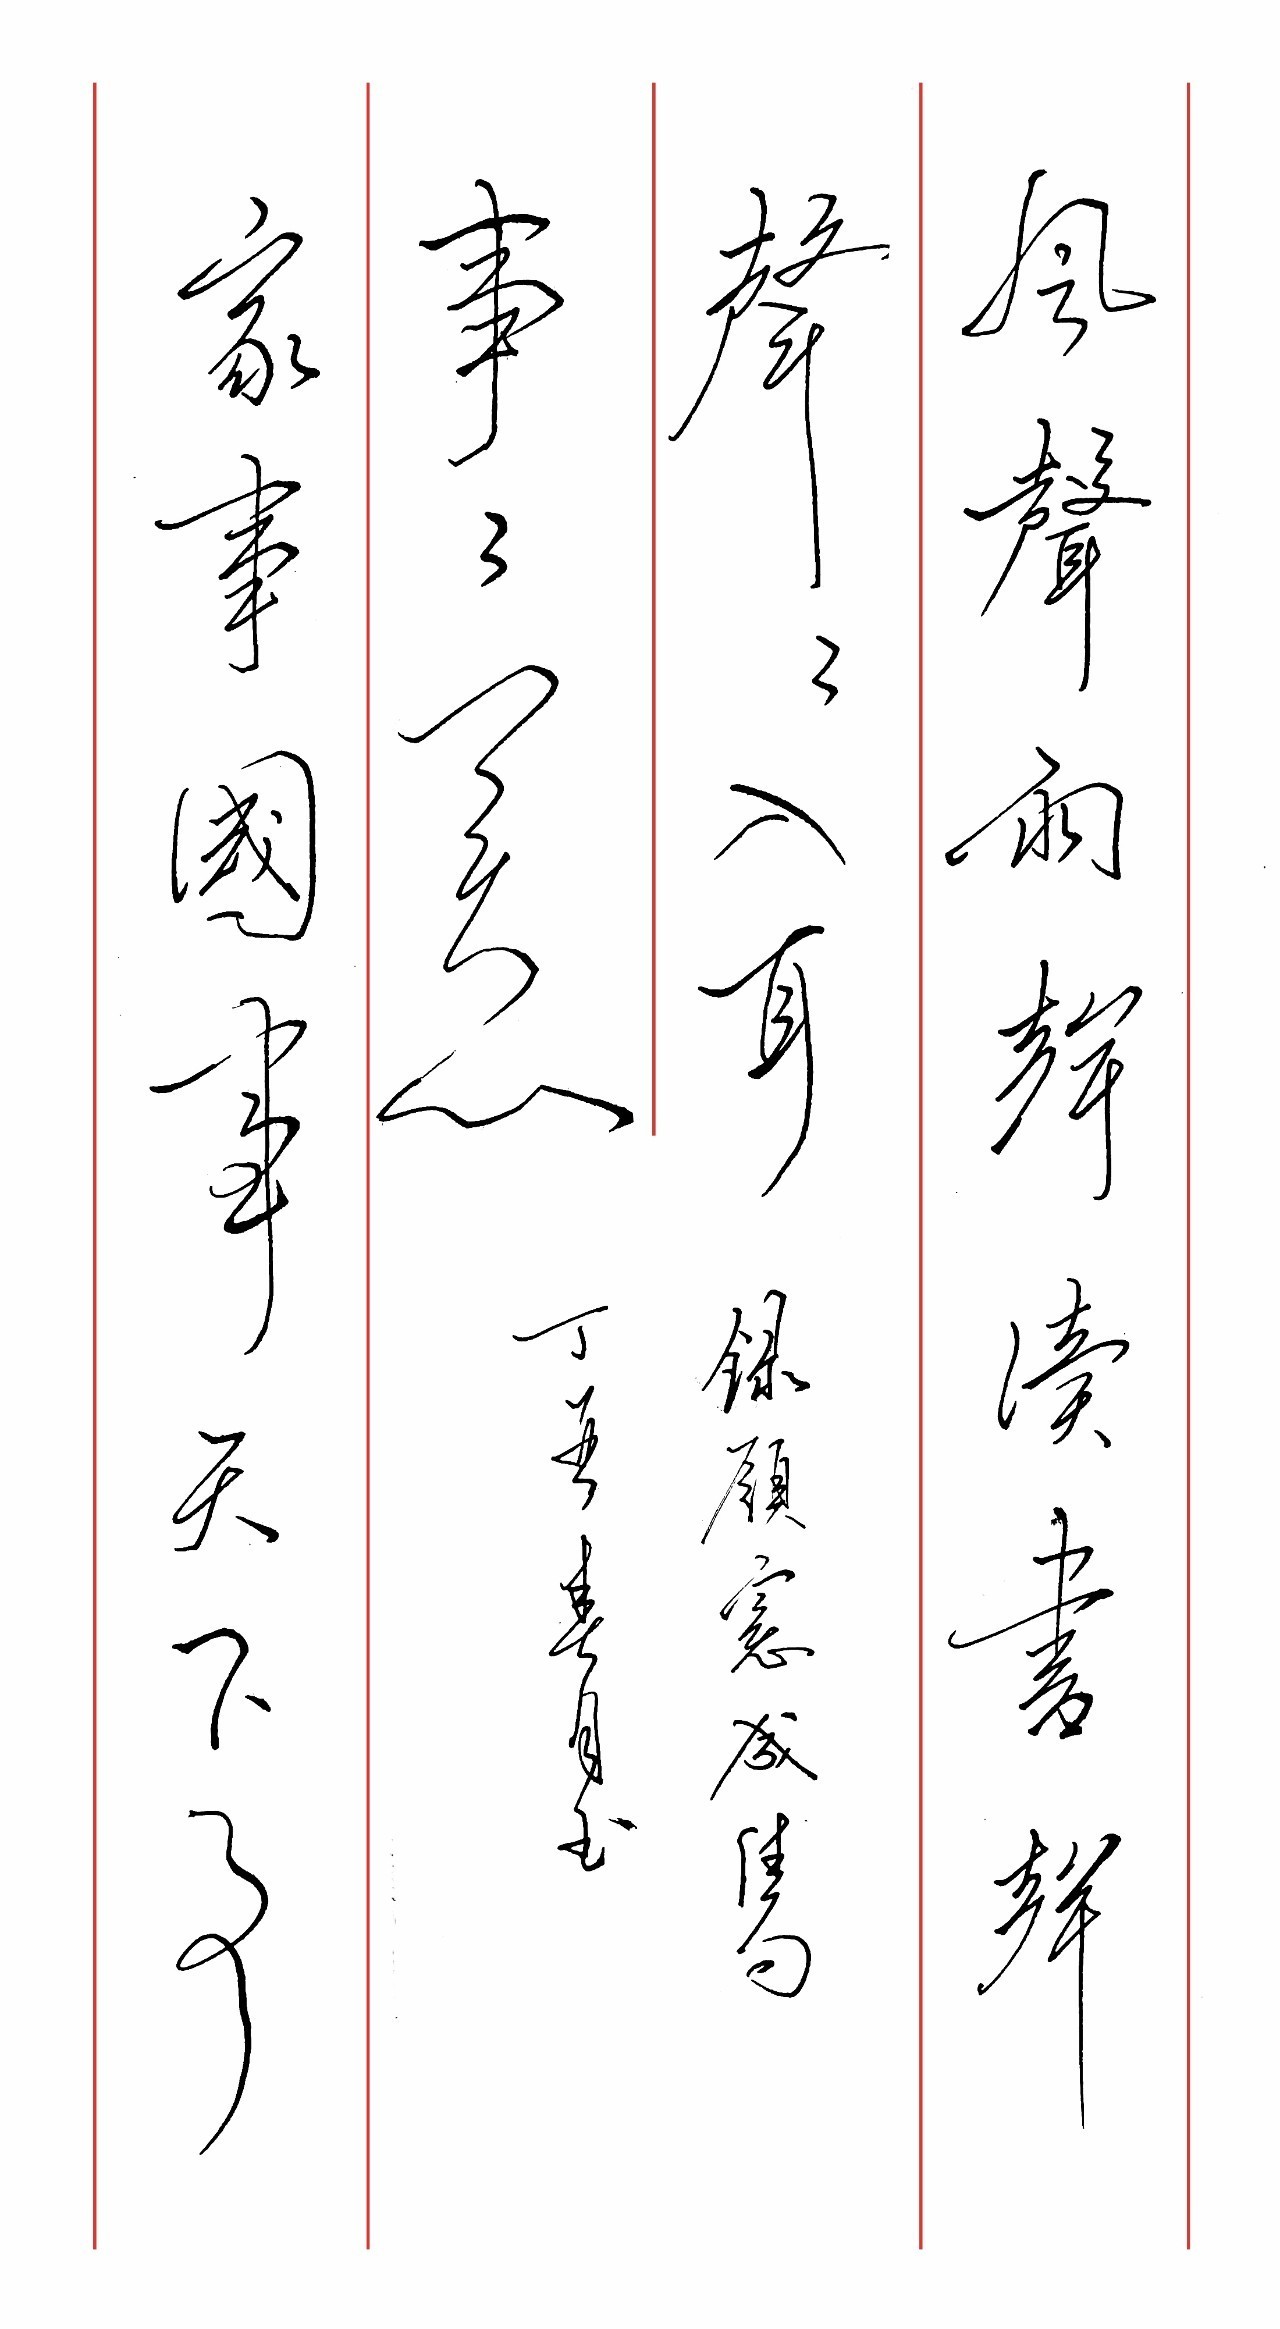 風聲雨聲讀書聲
聲〻入耳
家事國事天下事
事〻關心
録顧憲成佳句
丁春月书